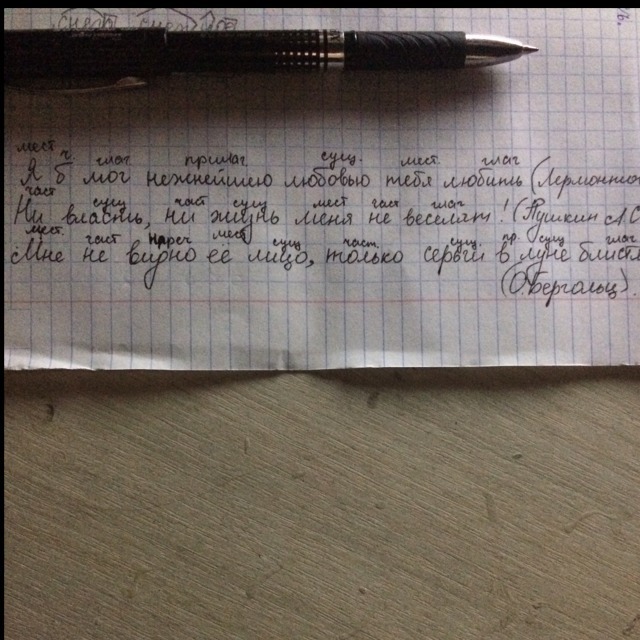 мест ч глаг прилаг сущ. мест. глаг
Я б мог нежнейшею любовью тебя любить (Лермонтов
част сущ част сущ мест част глаг
Ни власть, ни жизнь меня не веселят! (Пушкин А С
мест. част нареч мест сущ част. сущ. пр. сущ глаг
Мне не видно её лицо, только серьги в луне блистя
(Обергольц).